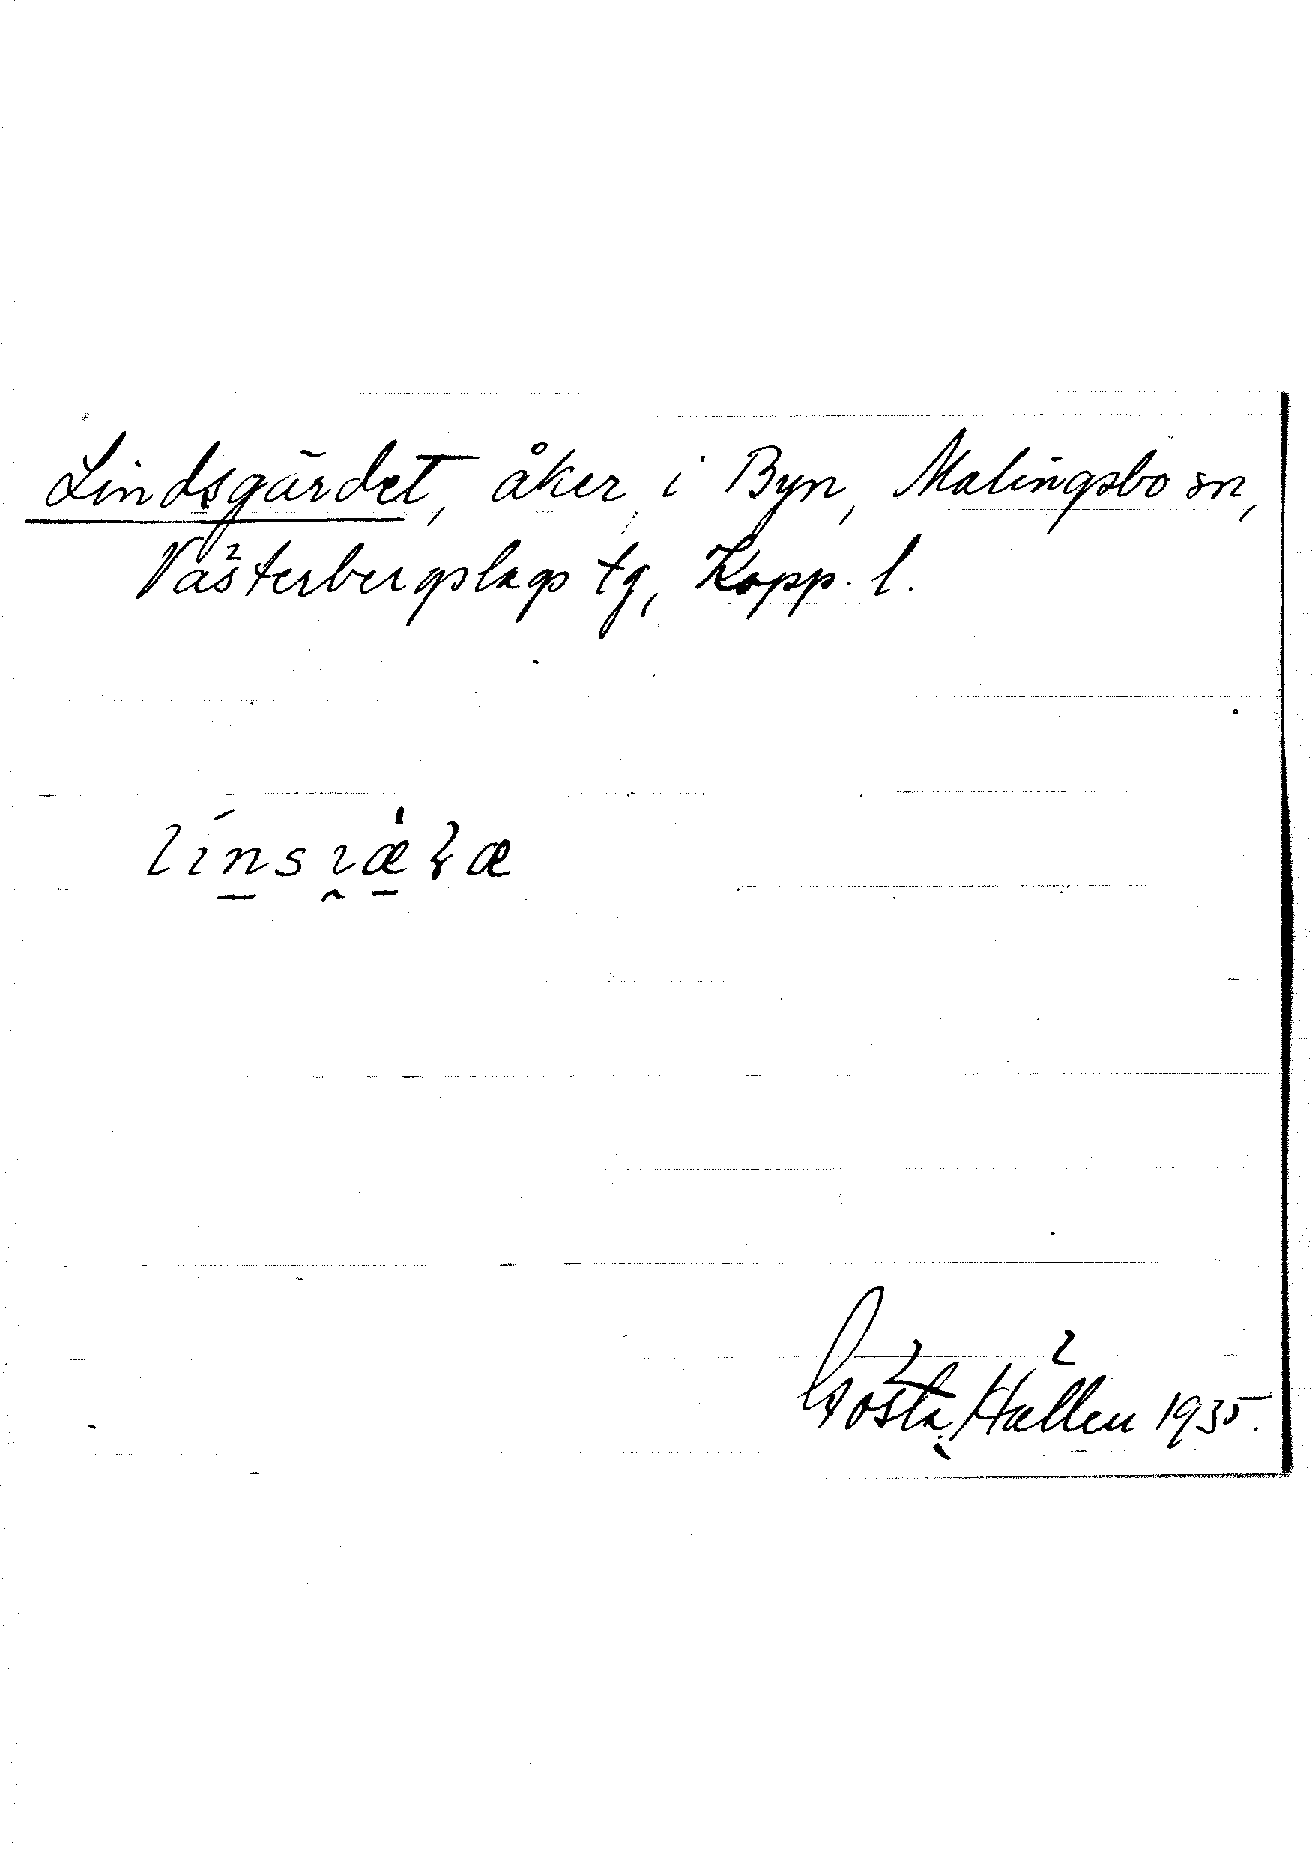 Lindsgärdet, åker i Byn, Malingsbo sn,
Västerbergslags tg, Kopp. l.
Gösta Hallen 1935.